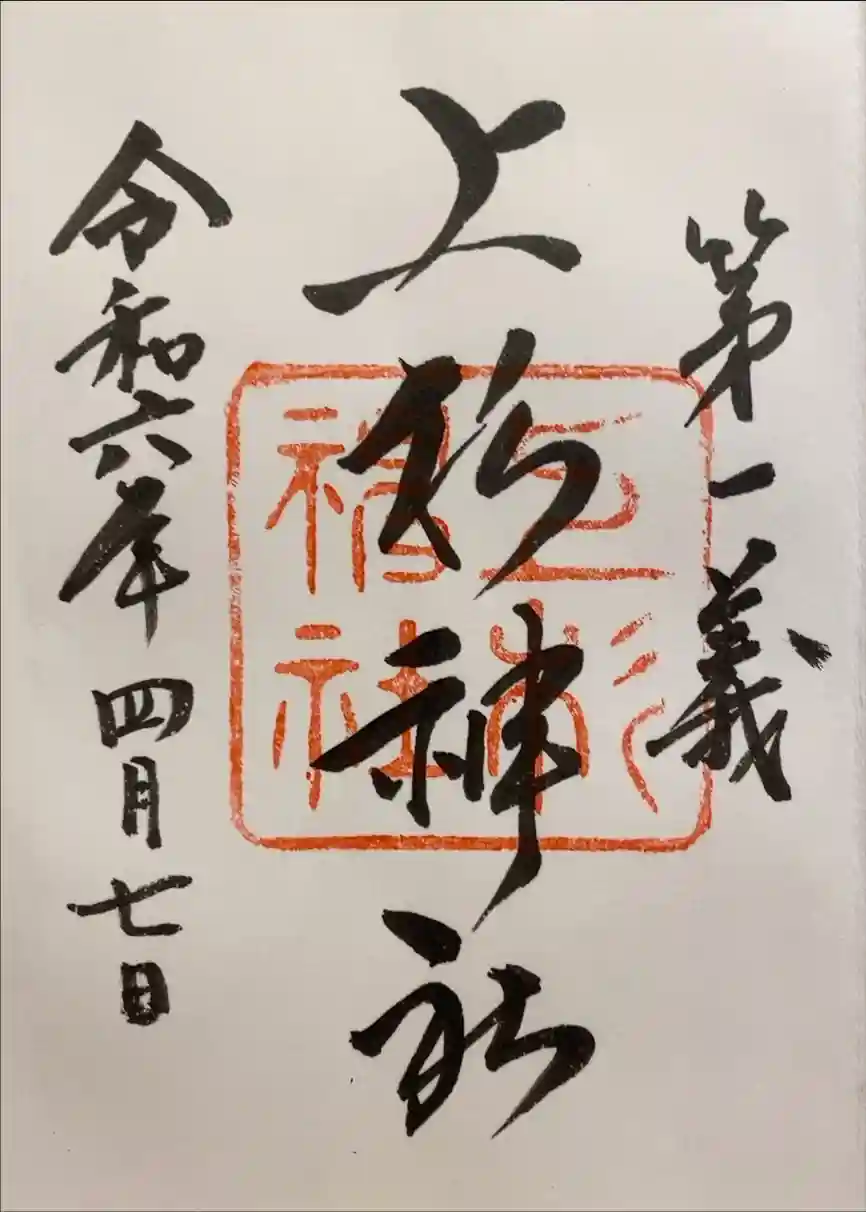 第一義
上杉神社
上杉神社
令和六年 四月七日